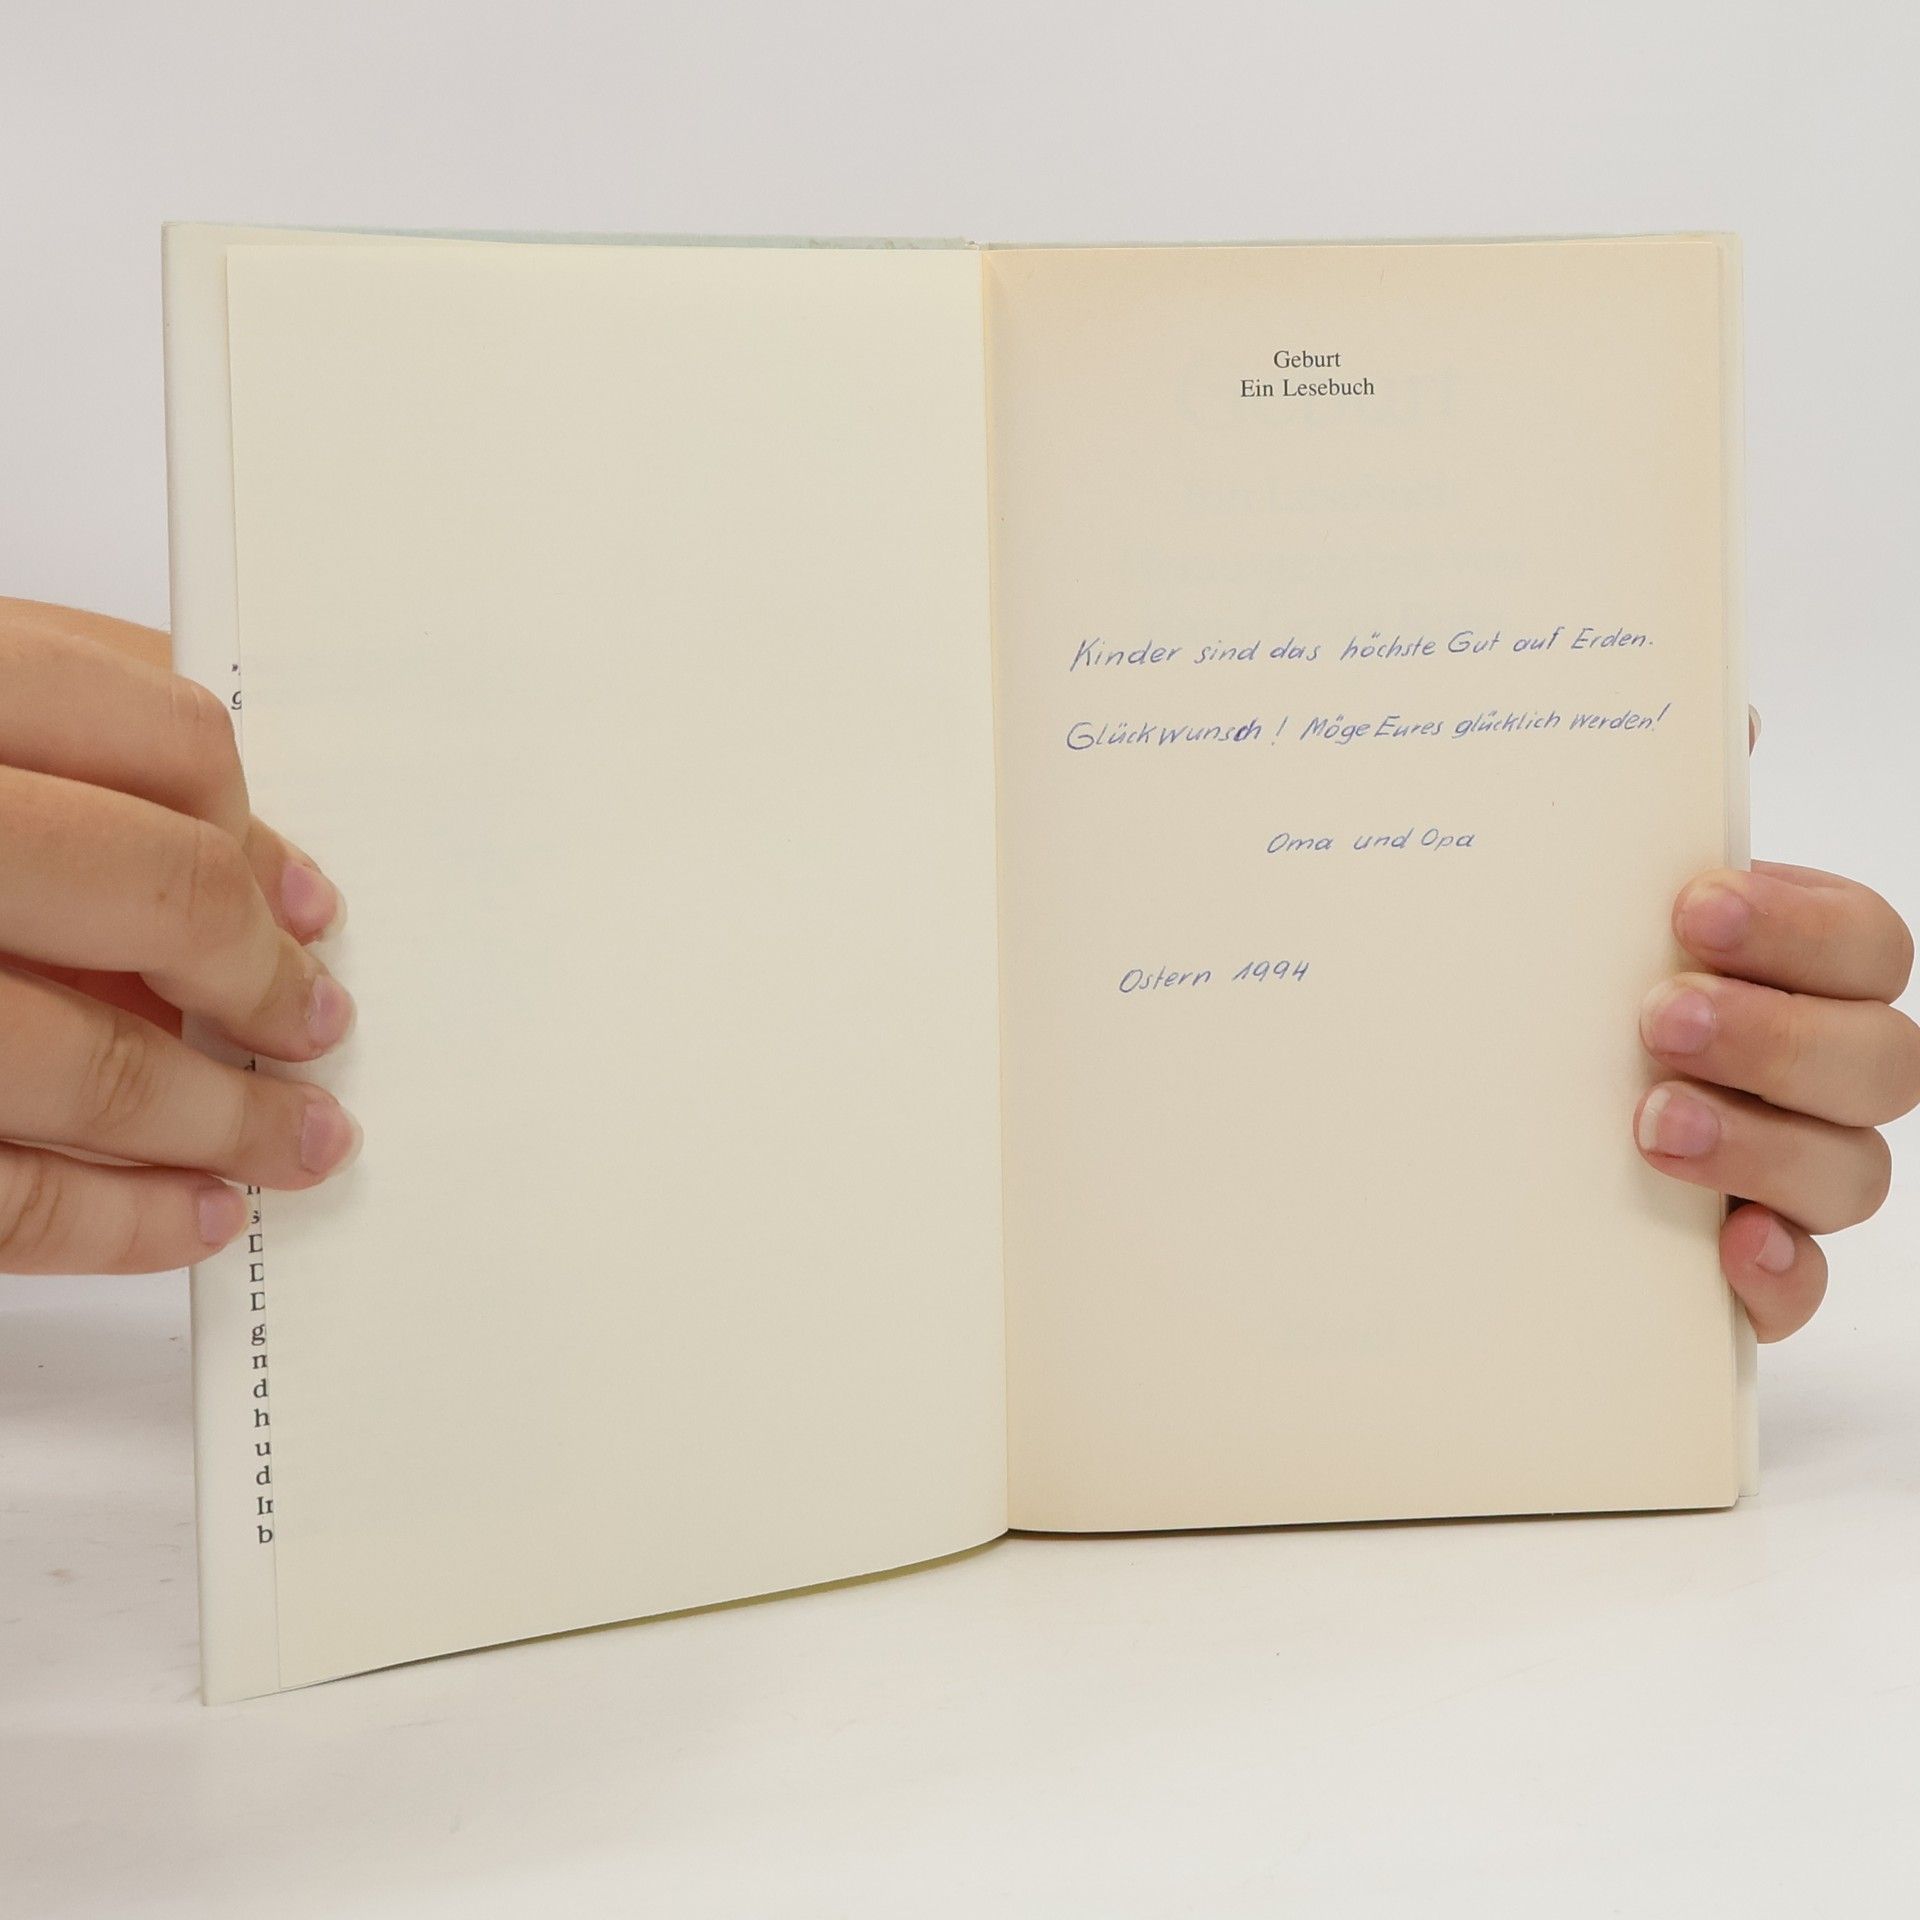 Geburt
Ein Lesebuch
Kinder sind das höchste Gut auf Erden.
Glückwunsch! Möge Eures glücklich werden!
Oma und Opa
Ostern 1994
g
d
s
D
D
D
g
m
d
h
u
d
b